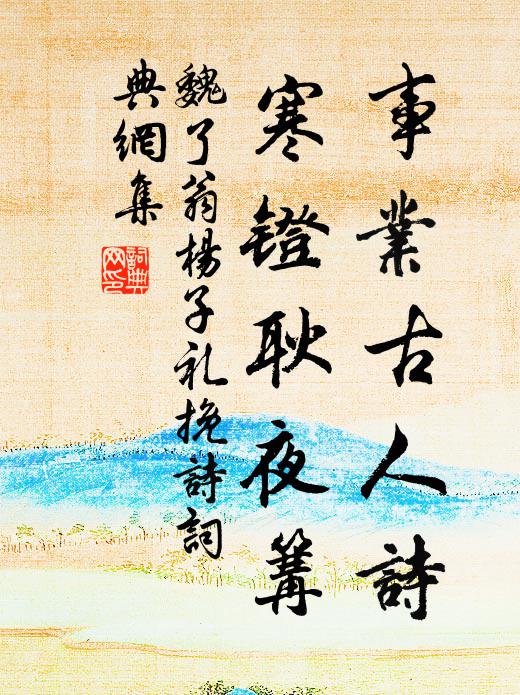 事業古人詩
寒鐙耿夜篝
魏了翁楊子礼挽詩詞
典網集
詞典
网印